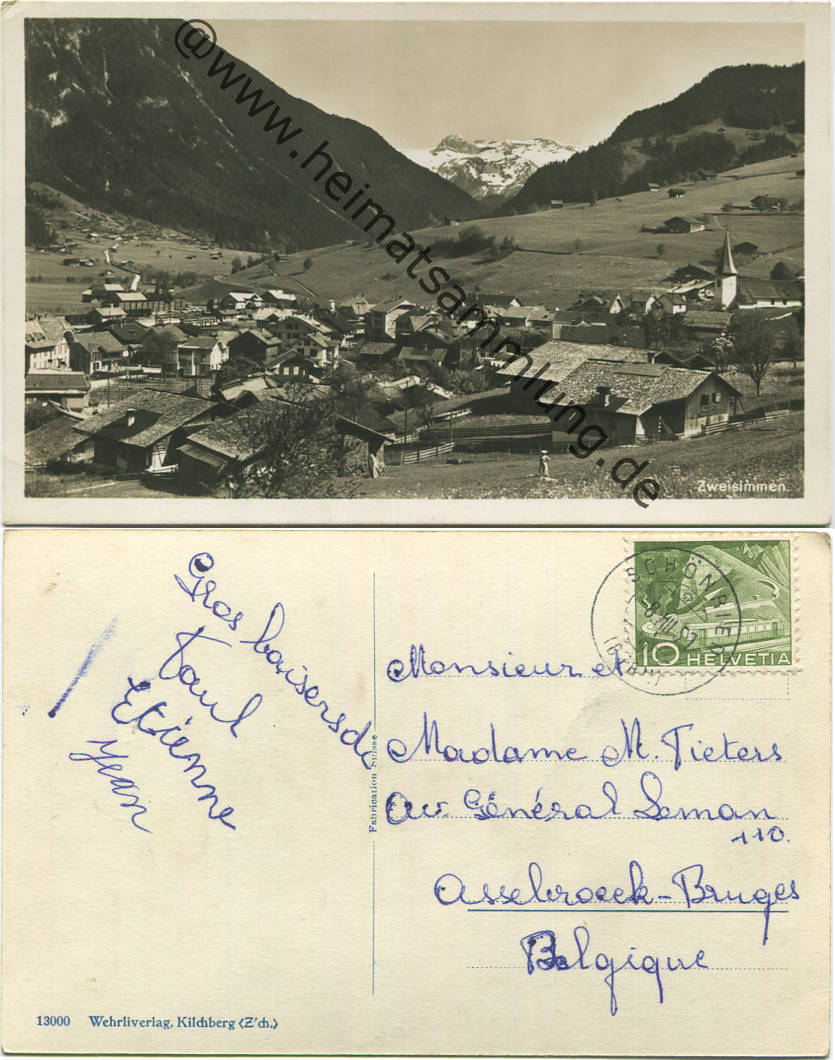 @www.heimatsammlung.de
Zweisimmen.
Gros baisers de
Paul
Etienne
Jean
Fabrication Suisse
SCHÖNRIED
10 HELVETIA
Monsieur et
Madame M. Pieters
Av. Général Leman
110.
Assebroeck-Bruges
Belgique
13000 Wehrliverlag, Kilchberg (Z'ch.)